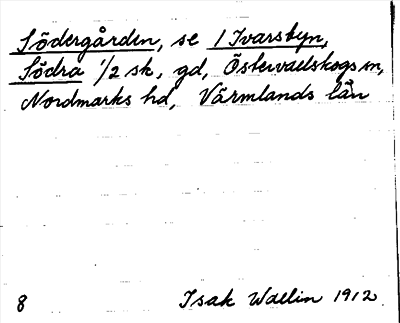 Södergården, se 1 Ivarsbyn,
Södra 1/2 sk, gd, Östervallskogs sn,
Nordmarks hd, Värmlands län
8 Isak Wallin 1912